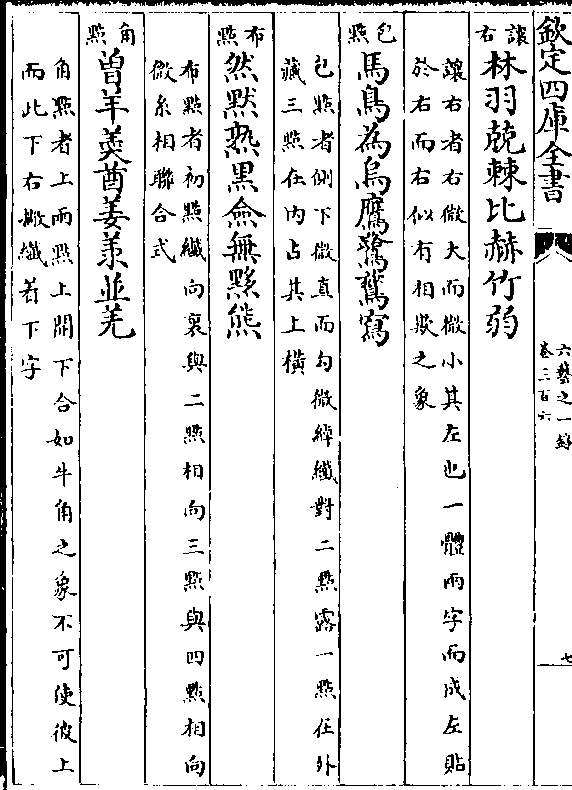 欽定四庫全書
六藝之一錄
卷三百六
七
讓右
林羽兢棘比赫竹弱
讓右者右微大而微小其左也一體兩字而成左貼
於右而右似有相欺之象
包點
馬鳥為烏鷹鷺鷲寫
包點者側下微直而勾微綽纖對二點露一點在外
藏三點在內占其上橫
布點
然默熟黑僉無黟熊
布點者初點纖向裏與二點相向三點與四點相向
微糸相聯合式
角點
曽羊美酋姜羕並羌
角點者上兩點上開下合如牛角之象不可使彼上
而此下右撇纖着下字